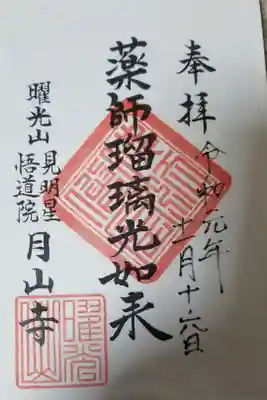 奉拝
令和元年
十一月十六日
薬師瑠璃光如来
曜光山
見明星
悟道院
月山寺